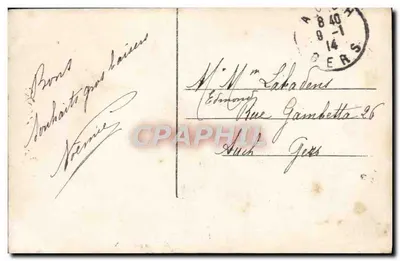 Bons
souhaits gros baisers
Noémie
AUCH
8 40
9 -1
14
GERS
Mr Mme Labadens
(Edmond) Rue Gambetta 26
Auch Gers
CPAPHIL